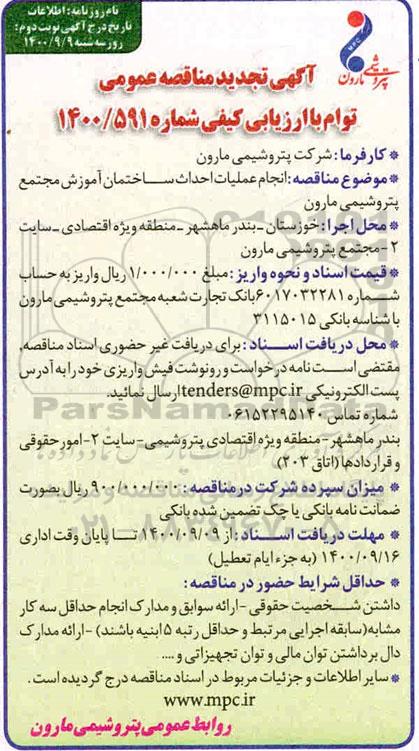 نام روزنامه: اطلاعات
تاریخ درج آگهی نوبت دوم:
روز سه شنبه ۱۴۰۰/۹/۹
MPC
پتروشیمی مارون
آگهی تجدید مناقصه عمومی
توام با ارزیابی کیفی شماره ۱۴۰۰/۵۹۱
* کارفرما: شرکت پتروشیمی مارون
* موضوع مناقصه: انجام عملیات احداث ساختمان آموزش مجتمع
پتروشیمی مارون
* محل اجرا: خوزستان - بندر ماهشهر - منطقه ویژه اقتصادی - سایت
۲ - مجتمع پتروشیمی مارون
* قیمت اسناد و نحوه واریز: مبلغ ۱/۰۰۰/۰۰۰ ریال واریز به حساب
شماره ۶۰۱۷۰۳۲۲۸۱ بانک تجارت شعبه مجتمع پتروشیمی مارون
با شناسه بانکی ۳۱۱۵۰۱۵
* محل دریافت اسناد: برای دریافت غیر حضوری اسناد مناقصه،
مقتضی است نامه درخواست و رونوشت فیش واریزی خود را به آدرس
پست الکترونیکی tenders@mpc.ir ارسال نمائید.
شماره تماس ۰۶۱۵۲۲۹۵۱۴۰
بندر ماهشهر - منطقه ویژه اقتصادی پتروشیمی - سایت ۲ - امور حقوقی
و قراردادها (اتاق ۲۰۳)
* میزان سپرده شرکت در مناقصه: ۹۰۰/۰۰۰/۰۰۰ ریال بصورت
ضمانت نامه بانکی یا چک تضمین شده بانکی
* مهلت دریافت اسناد: از ۱۴۰۰/۰۹/۰۹ تا پایان وقت اداری
۱۴۰۰/۰۹/۱۶ (به جزء ایام تعطیل)
* حداقل شرایط حضور در مناقصه:
داشتن شخصیت حقوقی - ارائه سوابق و مدارک انجام حداقل سه کار
مشابه (سابقه اجرایی مرتبط و حداقل رتبه ۵ ابنیه باشند) - ارائه مدارک
دال بر داشتن توان مالی و توان تجهیزاتی و ....
* سایر اطلاعات و جزئیات مربوط در اسناد مناقصه درج گردیده است.
www.mpc.ir
روابط عمومی پتروشیمی مارون